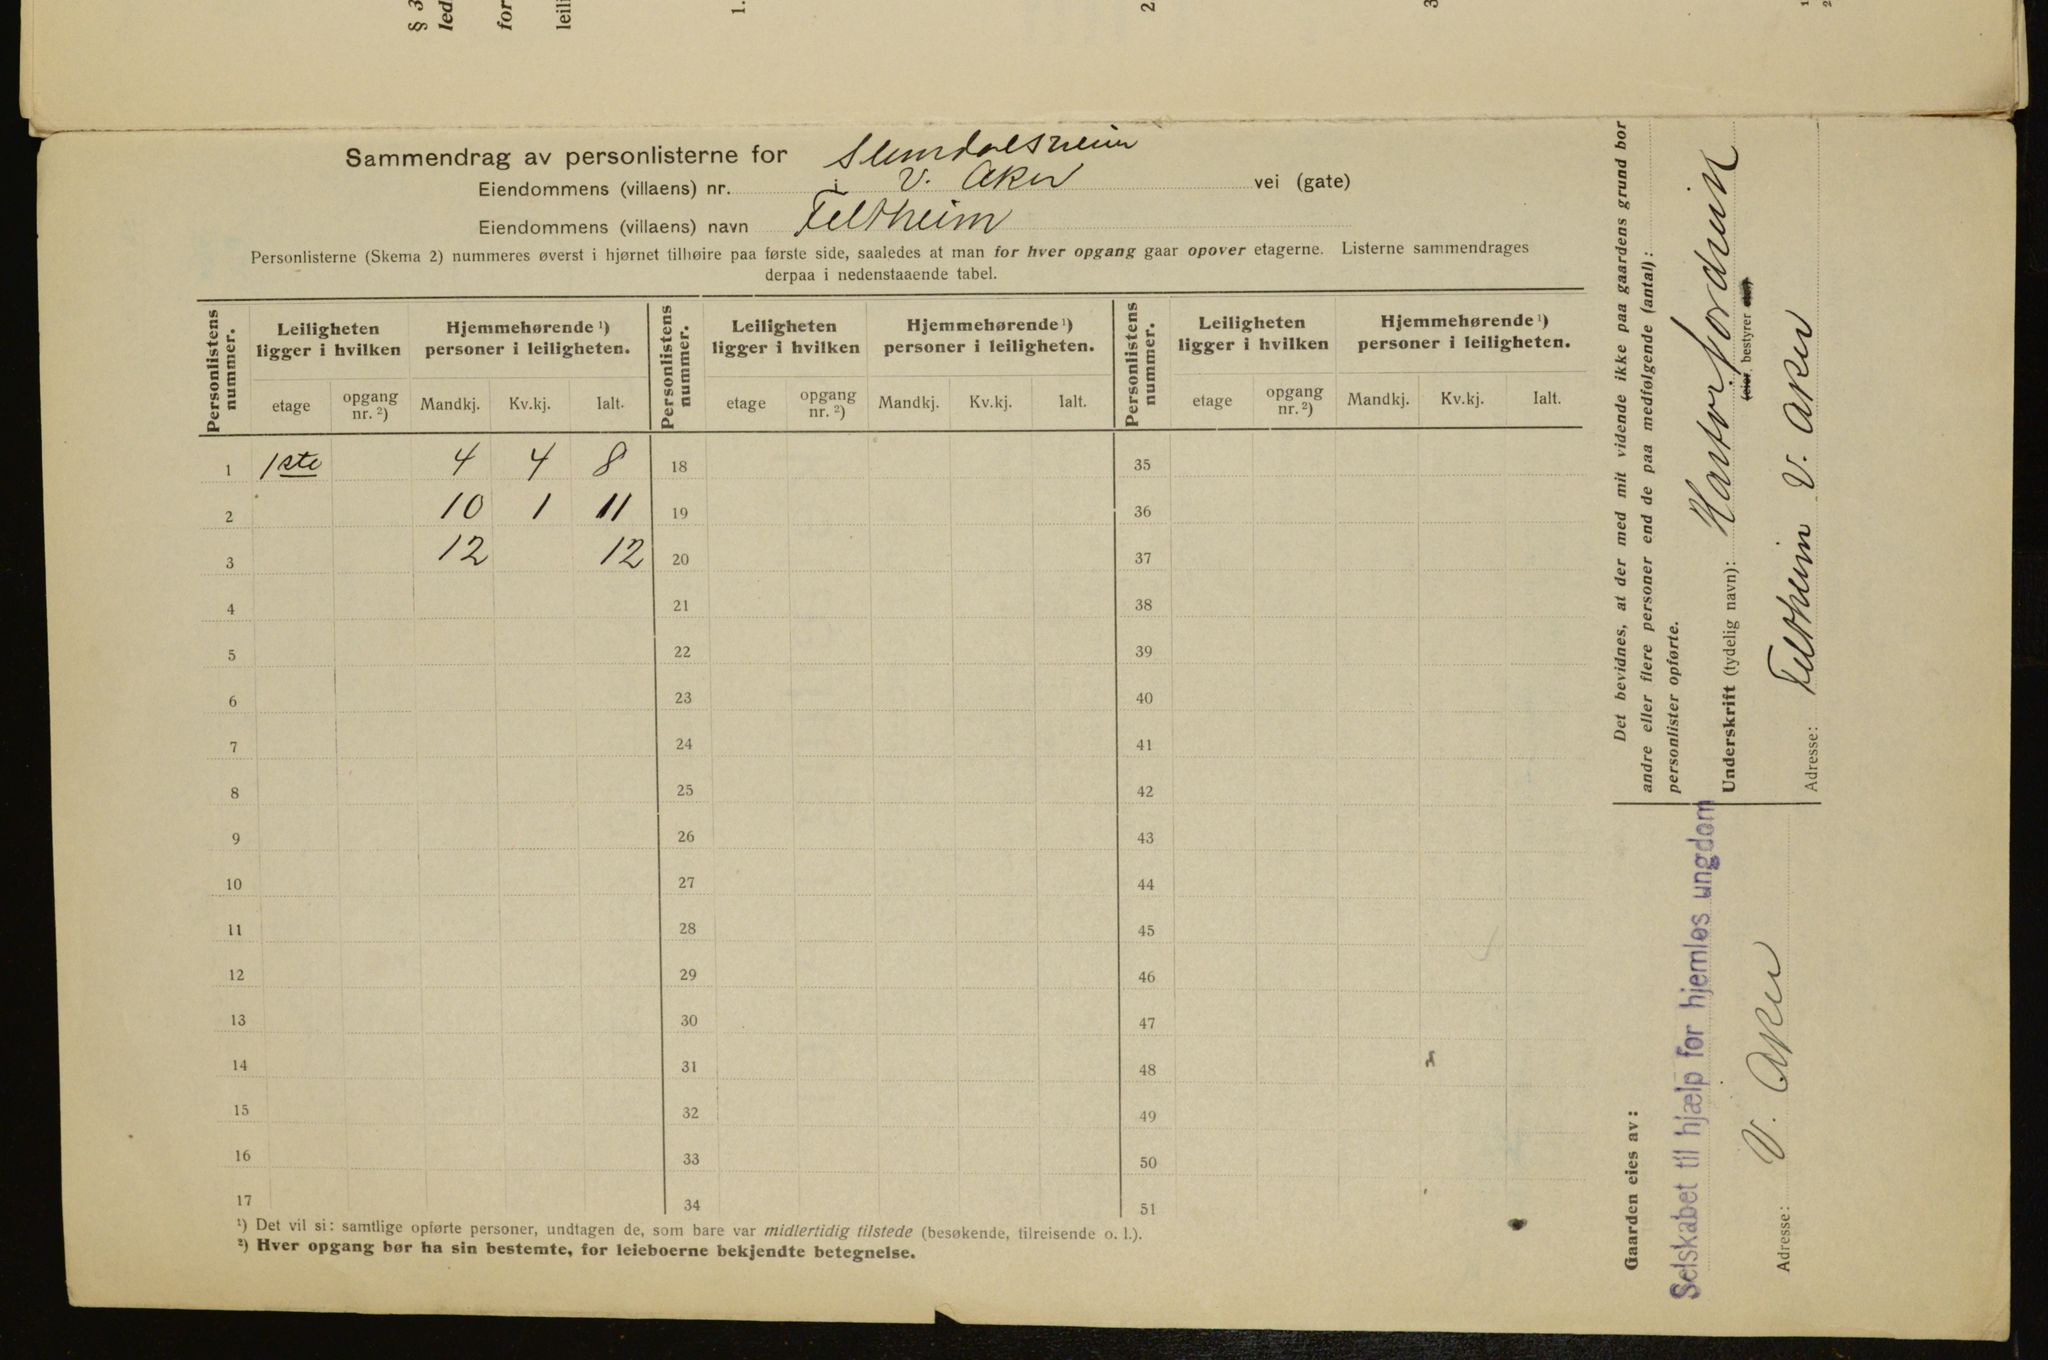 § 3
led
for
leili
1.
2
3
1
2
Sammendrag av personlisterne for
Eiendommens (villaens) nr. i V. Aker vei (gate)
Eiendommens (villaens) navn Feltheim
Personlisterne (Skema 2) nummeres øverst i hjørnet tilhøire paa første side, saaledes at man for hver opgang gaar opover etagerne. Listerne sammendrages
derpaa i nedenstaaende tabel.
Personlistens nummer. Leiligheten ligger i hvilken Hjemmehørende ¹) personer i leiligheten. Personlistens nummer. Leiligheten ligger i hvilken Hjemmehørende ¹) personer i leiligheten. Personlistens nummer. Leiligheten ligger i hvilken Hjemmehørende ¹) personer i leiligheten.
etage opgang nr. ²) Mandkj. Kv.kj. Ialt. etage opgang nr. ²) Mandkj. Kv.kj. Ialt. etage opgang nr. ²) Mandkj. Kv.kj. Ialt.
1 1ste 4 4 8 18 35
2 10 1 11 19 36
3 12 12 20 37
4 21 38
5 22 39
6 23 40
7 24 41
8 25 42
9 26 43
10 27 44
11 28 45
12 29 46
13 30 47
14 31 48
15 32 49
16 33 50
17 34 51
¹) Det vil si: samtlige opførte personer, undtagen de, som bare var midlertidig tilstede (besøkende, tilreisende o. l.).
²) Hver opgang bør ha sin bestemte, for leieboerne bekjendte betegnelse.
Det bevidnes, at der med mit vidende ikke paa gaardens grund bor
andre eller flere personer end de paa medfølgende (antal):
personlister opførte.
Underskrift (tydelig navn):
(eier, bestyrer
Adresse: Feltheim V. Aker
Gaarden eies av:
Selskabet til hjælp for hjemløs ungdom
Adresse: V. Aker